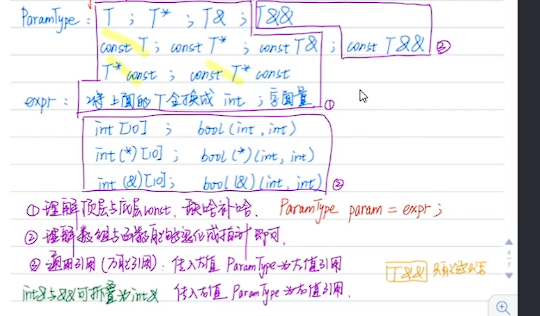 ParamType: T ; T* ; T& ; T&&
const T ; const T* ; const T& ; const T&& ②
T* const ; const T* const
expr: 将上面的T全换成 int ; 字面量 ①
int[10] ; bool(int, int)
int(*)[10] ; bool(*)(int, int)
int(&)[10] ; bool(&)(int, int) ②
① 理解顶层与底层const, 缺啥补啥. ParamType param = expr;
② 理解数组与函数 退化成指针即可.
③ 通用引用(万能引用): 传入左值 ParamType为左值引用
T&&
int&与&&可折叠为int& 传入右值 ParamType为右值引用.